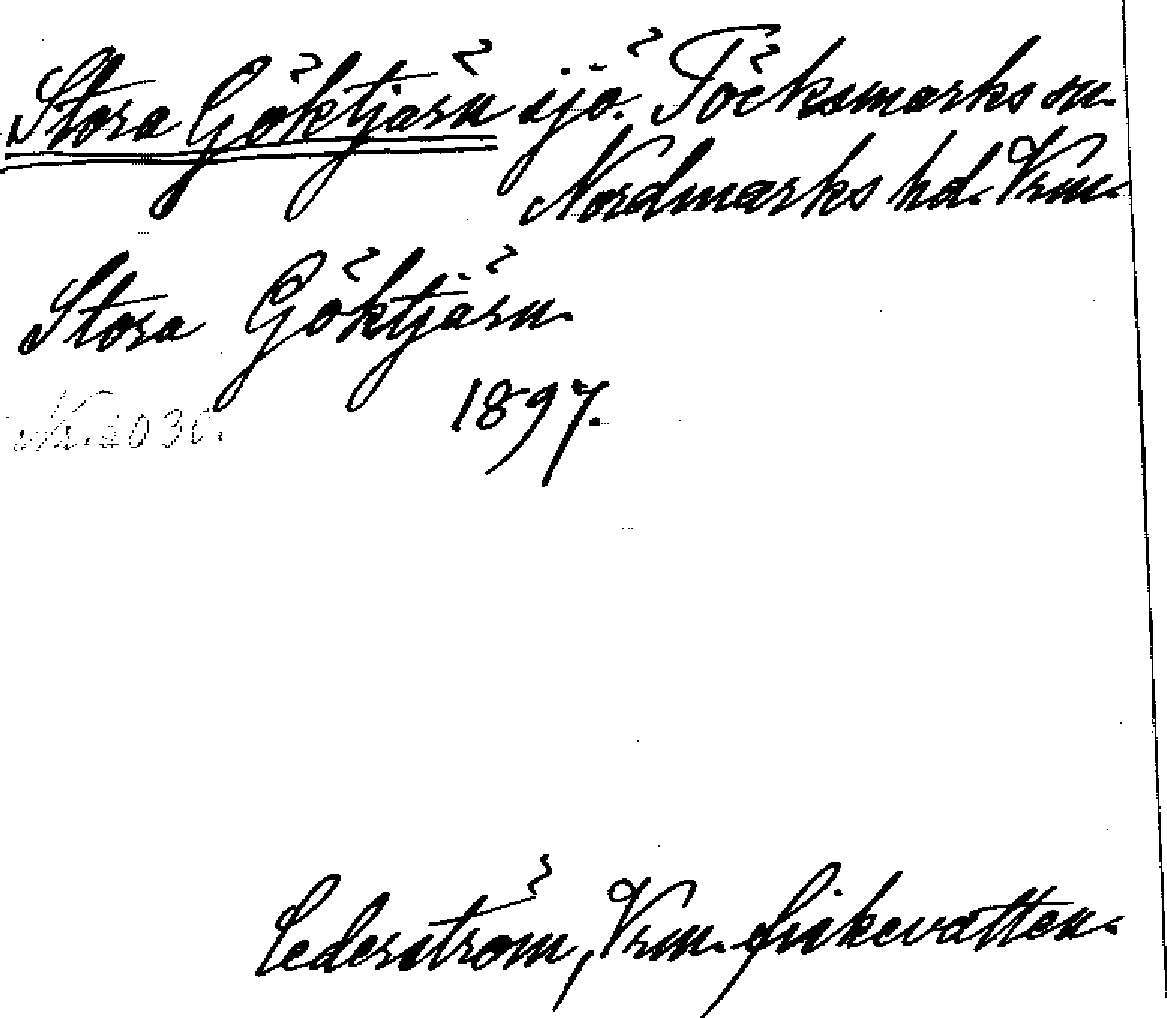 Stora Göktjärn sjö. Töcksmarks sn.
Nordmarks hd. Vrm.
Stora Göktjärn.
1897.
Cederström, Vrm. fiskevatten.